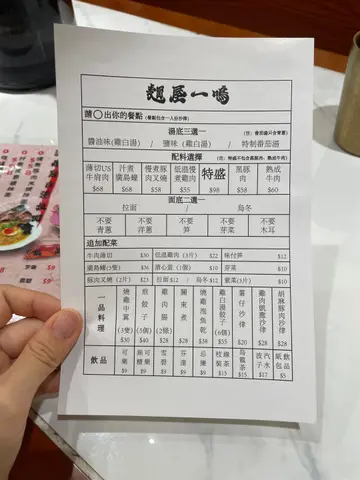 麵屋一鳴
請◯出你的餐點 (餐點包含一人份炒飯)
湯底三選一
醬油味 (雞白湯) / 鹽味 (雞白湯) / 特制番茄湯
配料選擇
薄切US牛肩肉 $68
汁煮廣島蠔 $68
慢煮豚肉叉燒 $58
低温慢煮雞肉 $55
特盛 $98
黑豚肉 $58
熟成牛肉 $60
面底二選一
拉面 / 烏冬
不要青蔥
不要洋蔥
不要筍
不要芽菜
不要木耳
追加配菜
牛肉薄切 $30
低温雞肉 (3片) $22
味付筍 $12
廣島蠔(3隻) $36
溏心蛋 (1個) $10
芽菜 $10
豚肉叉燒 (2片) $23
拉面 $12 / 烏冬 $12
紫菜(3片) $10
一品料理
燒雞中翼 (3隻) $30
煎餃子 (5個) $40
雞肉腸 (2條) $28
關東煮 $38
燒雞泡魚乾 $38
雞白湯餃子 (6個) $55
薯仔沙律 $20
雞肉凱撒沙律 $28
胡麻豚肉沙律 $28
飲品
可樂 $9
無糖可樂 $9
雪碧 $9
芬達 $9
忌廉 $9
枝裝綠茶 $15
烏龍茶 $15
波子汽水 $17
紙包飲品 $8